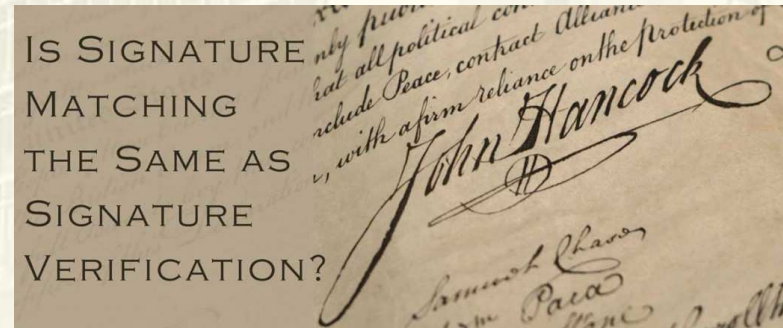 IS SIGNATURE
MATCHING
THE SAME AS
SIGNATURE
VERIFICATION?
nly
hat all political con
nclude Peace, contract Alliance
, with a firm reliance on the Protection of
John Hancock
Samuel Chase
Paca